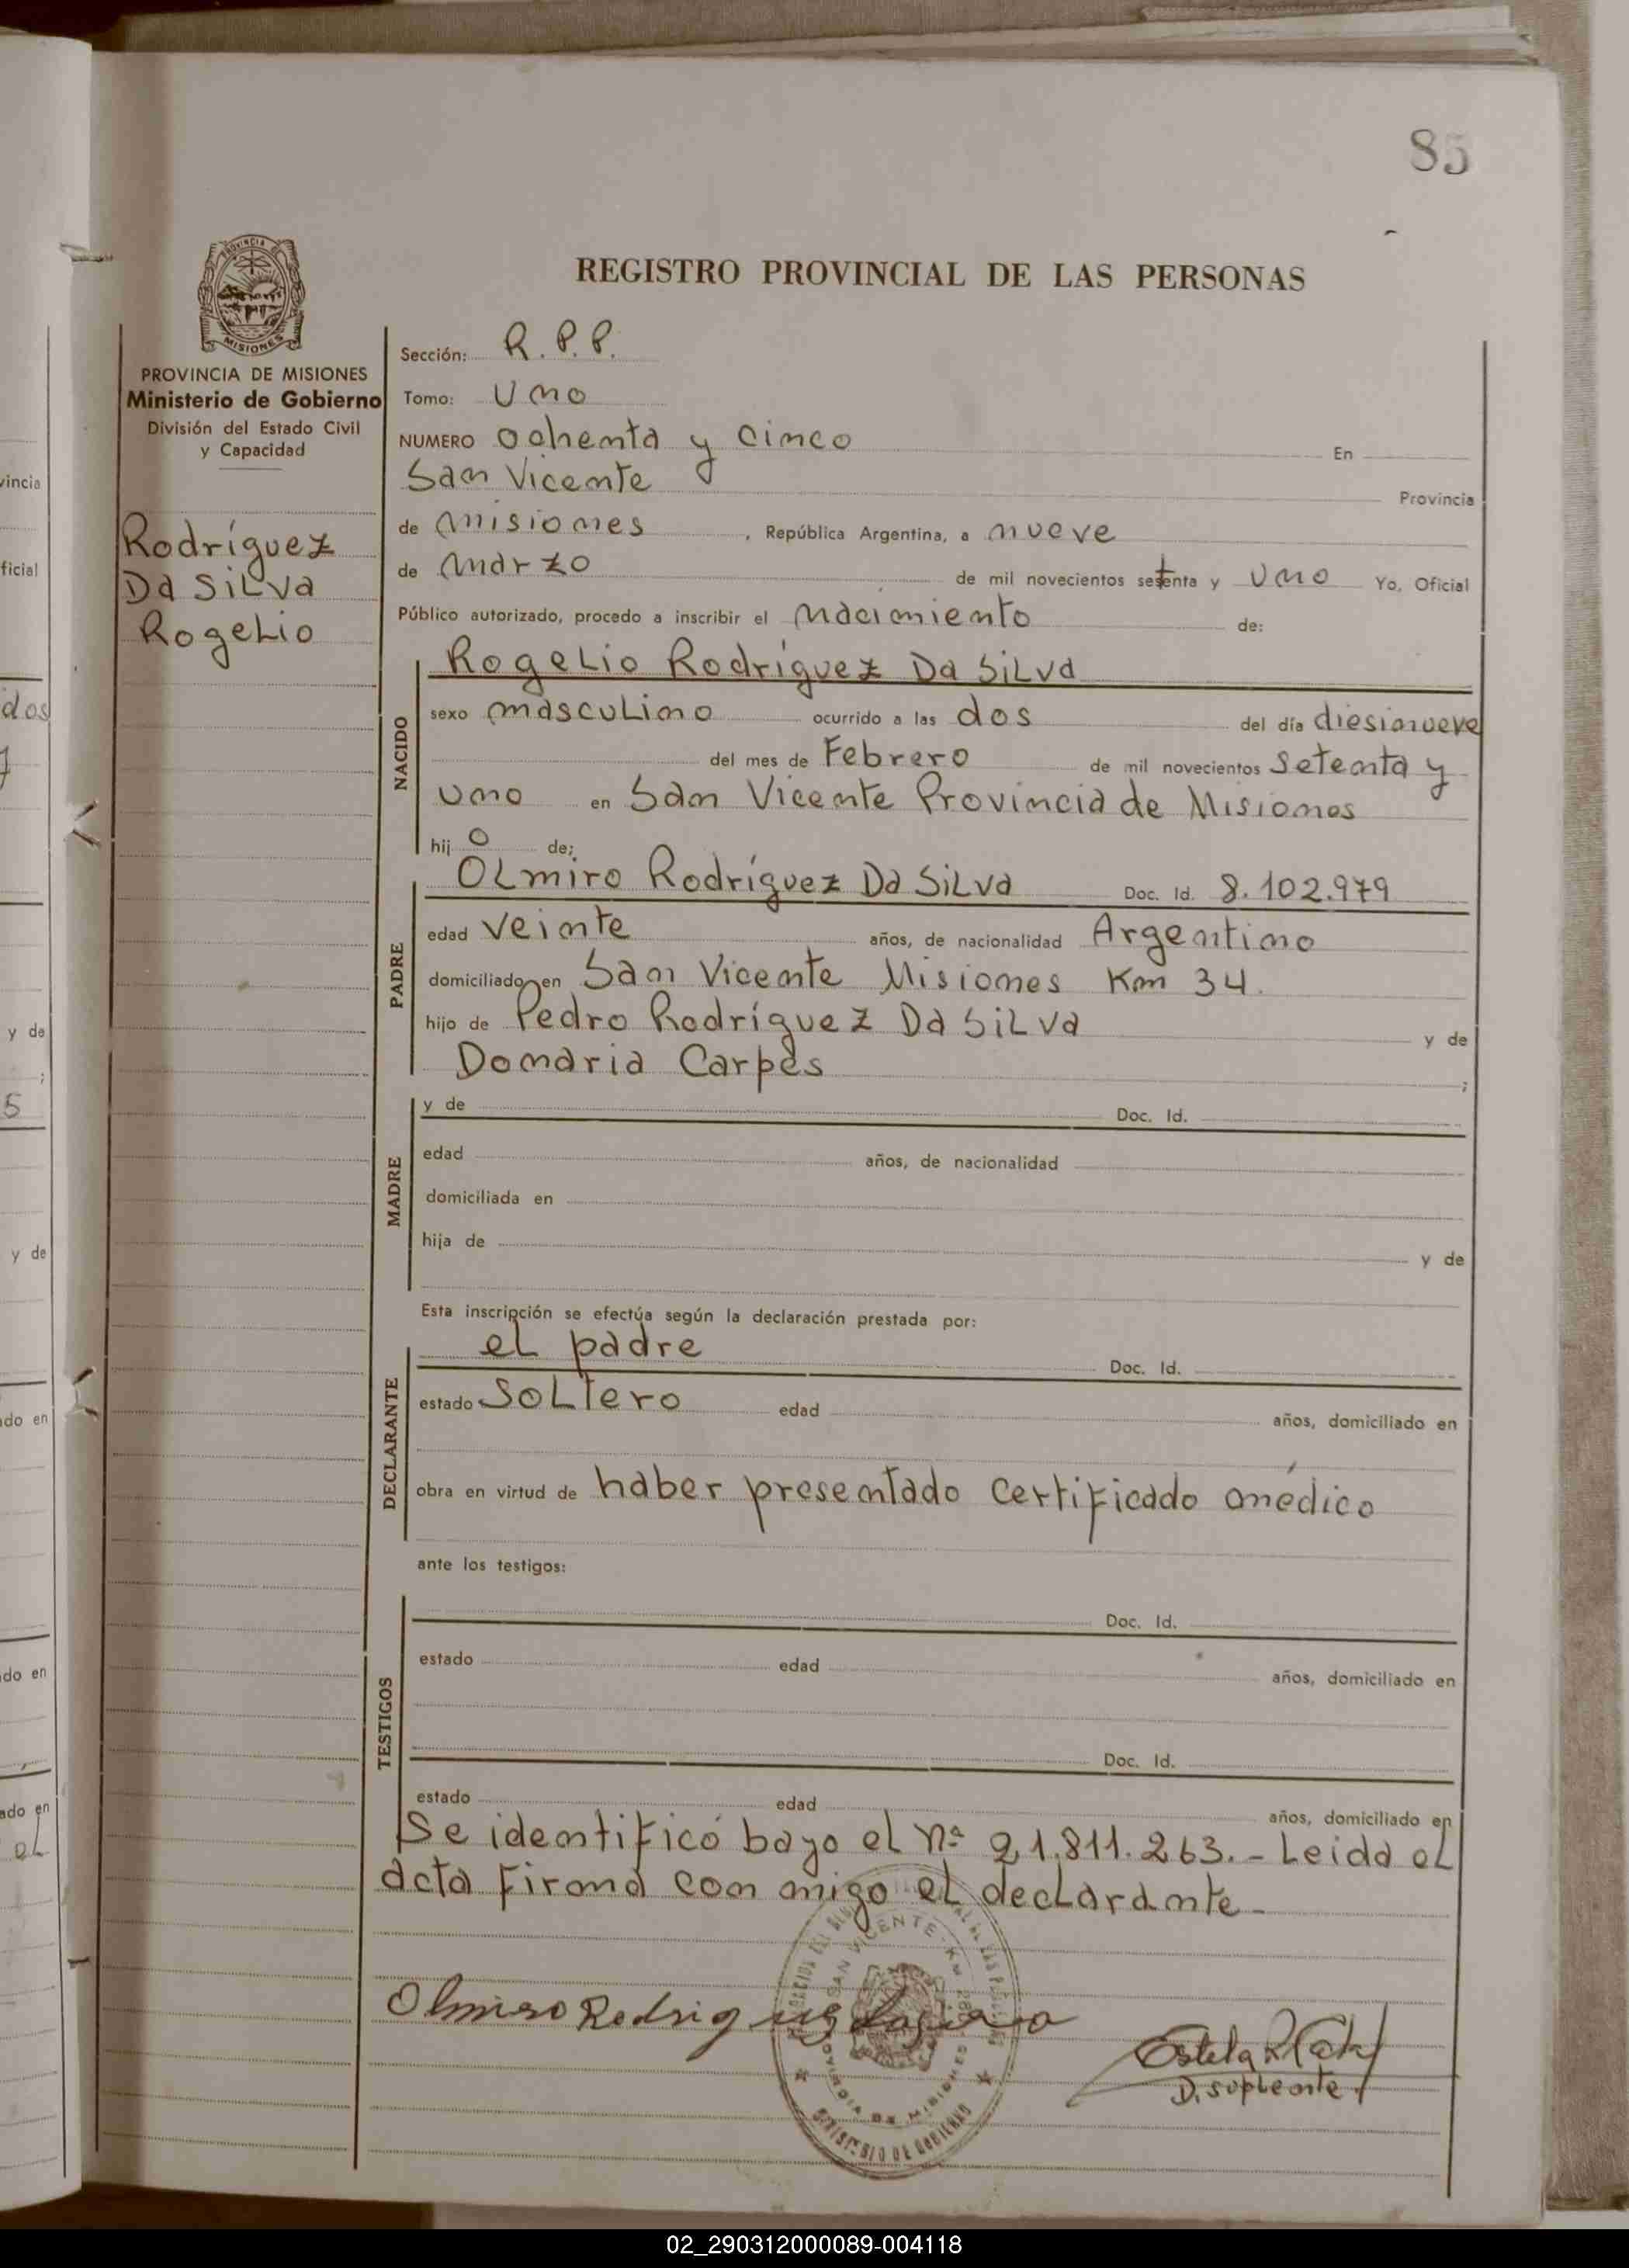 85
REGISTRO PROVINCIAL DE LAS PERSONAS
PROVINCIA DE MISIONES
Ministerio de Gobierno
División del Estado Civil
y Capacidad
Rodríguez
Da Silva
Rogelio
Sección: R.P.P.
Tomo: Uno
NUMERO Ochenta y cinco En
San Vicente Provincia
de Misiones, República Argentina, a nueve
de marzo de mil novecientos setenta y uno Yo, Oficial
Público autorizado, procedo a inscribir el nacimiento de:
NACIDO
Rogelio Rodríguez Da Silva
sexo masculino ocurrido a las dos del día diesinueve
del mes de Febrero de mil novecientos setenta y
uno en San Vicente Provincia de Misiones
hijo de:
PADRE
Olmiro Rodríguez Da Silva Doc. Id. 8.102.979
edad veinte años, de nacionalidad Argentino
domiciliado en San Vicente Misiones Km 34.
hijo de Pedro Rodríguez Da Silva y de
Domaria Carpes ;
MADRE
y de Doc. Id.
edad años, de nacionalidad
domiciliada en
hija de y de
Esta inscripción se efectúa según la declaración prestada por:
DECLARANTE
el padre Doc. Id.
estado Soltero edad años, domiciliado en
obra en virtud de haber presentado certificado médico
ante los testigos:
TESTIGOS
Doc. Id.
estado edad años, domiciliado en
Doc. Id.
estado edad años, domiciliado en
Se identificó bajo el nº 21.811.263.- Leida el
acta firma con migo el declarante.-
Olmiro Rodriguez dasilva
Estela
D. suplente
SAN VICENTE - KM
PROVINCIA DE MISIONES
MINISTERIO DE GOBIERNO
02_290312000089-004118